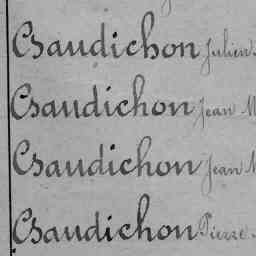 Gaudichon Julien
Gaudichon Jean M
Gaudichon Jean M
Gaudichon Pierre